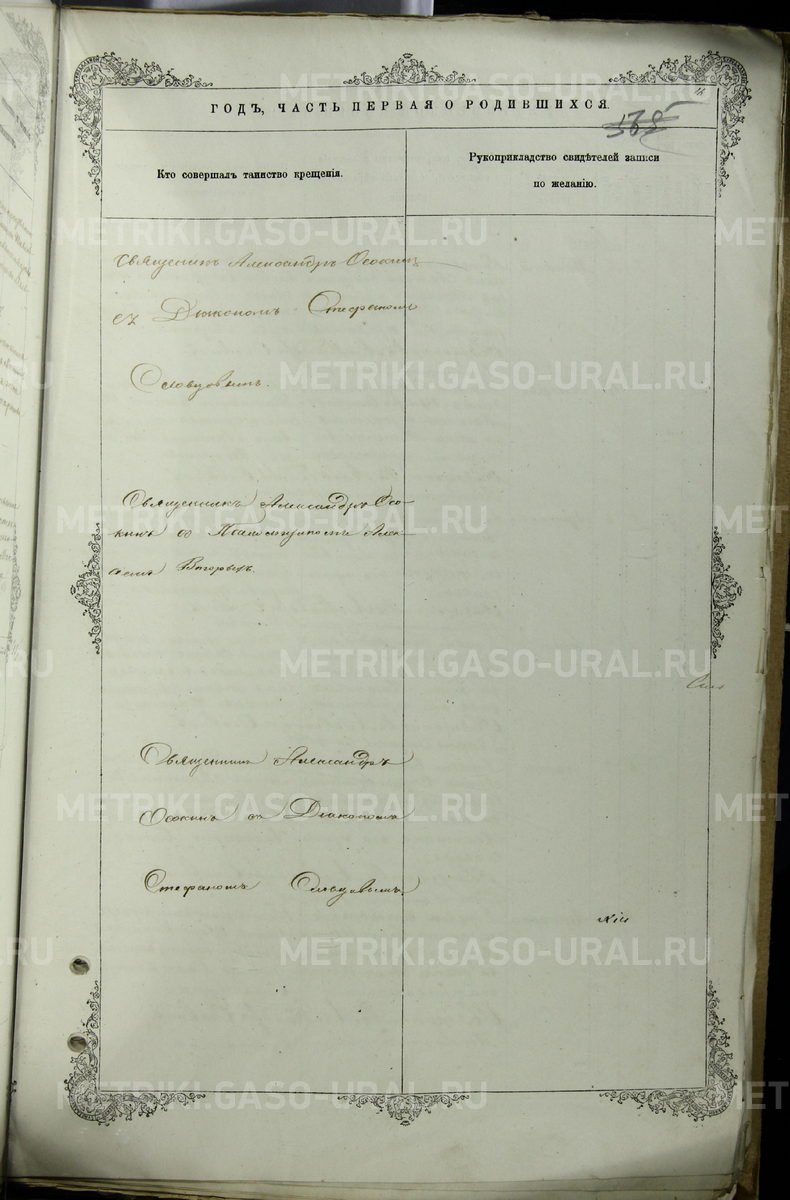 ГОДЪ, ЧАСТЬ ПЕРВАЯ О РОДИВШИХСЯ.
Кто совершалъ таинство крещенія.
Рукоприкладство свидѣтелей записи
по желанію.
Священникъ Александръ Осокинъ
съ Діакономъ Стефаномъ
Словцовымъ.
Священникъ Александръ Осо-
кинъ со Псаломщикомъ Алек-
сѣемъ
Священникъ Александръ
Осокинъ съ Діакономъ
Стефаномъ Словцовымъ.
METRIKI.GASO-URAL.RU